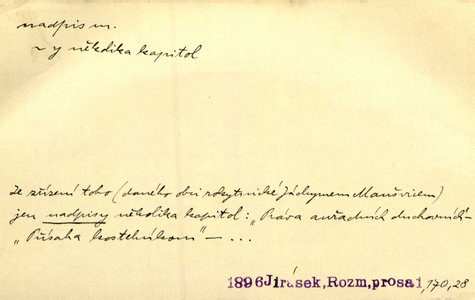 nadpis m.
~ y několika kapitol
Ze zřízení toho (daného obci rokytnické Jáchymem Maušvicem)
jen nadpisy několika kapitol: „Práva ouřadních duchovních"
„Přísaha kostelníkom" – ...
1896 Jirásek, Rozm, prosa 1, 170, 28